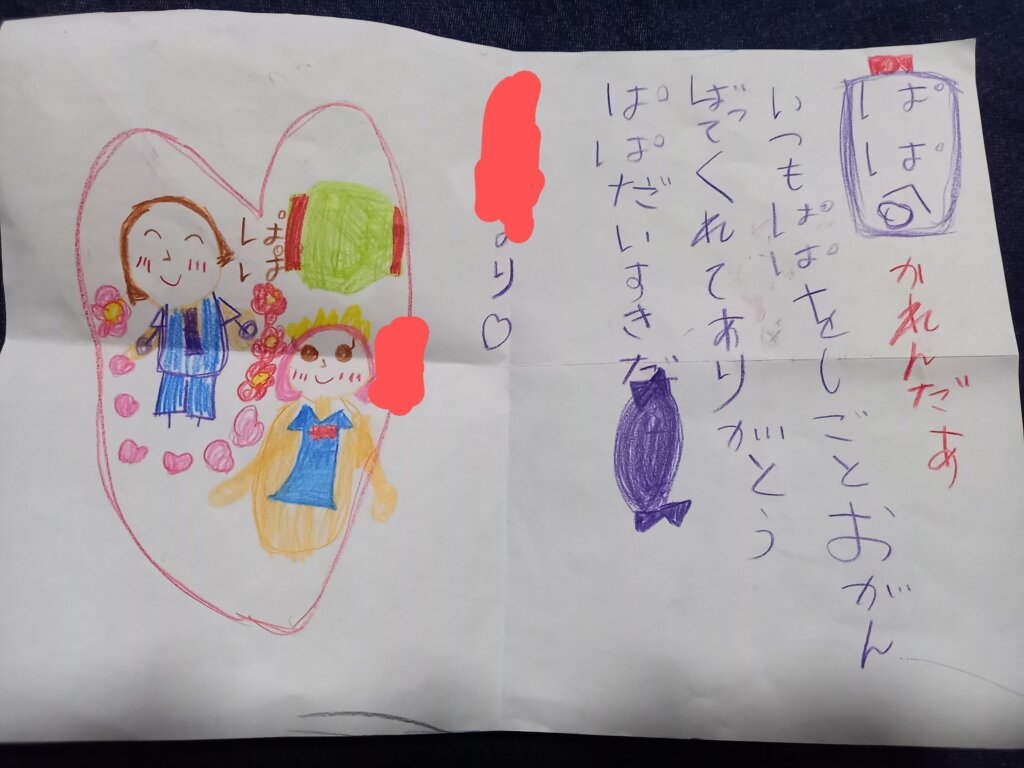 ぱぱへ
かれんだあ
いつもぱぱをしごとおがん
ばってくれてありがとう
ぱぱだいすきだ
り♡
ぱぱ